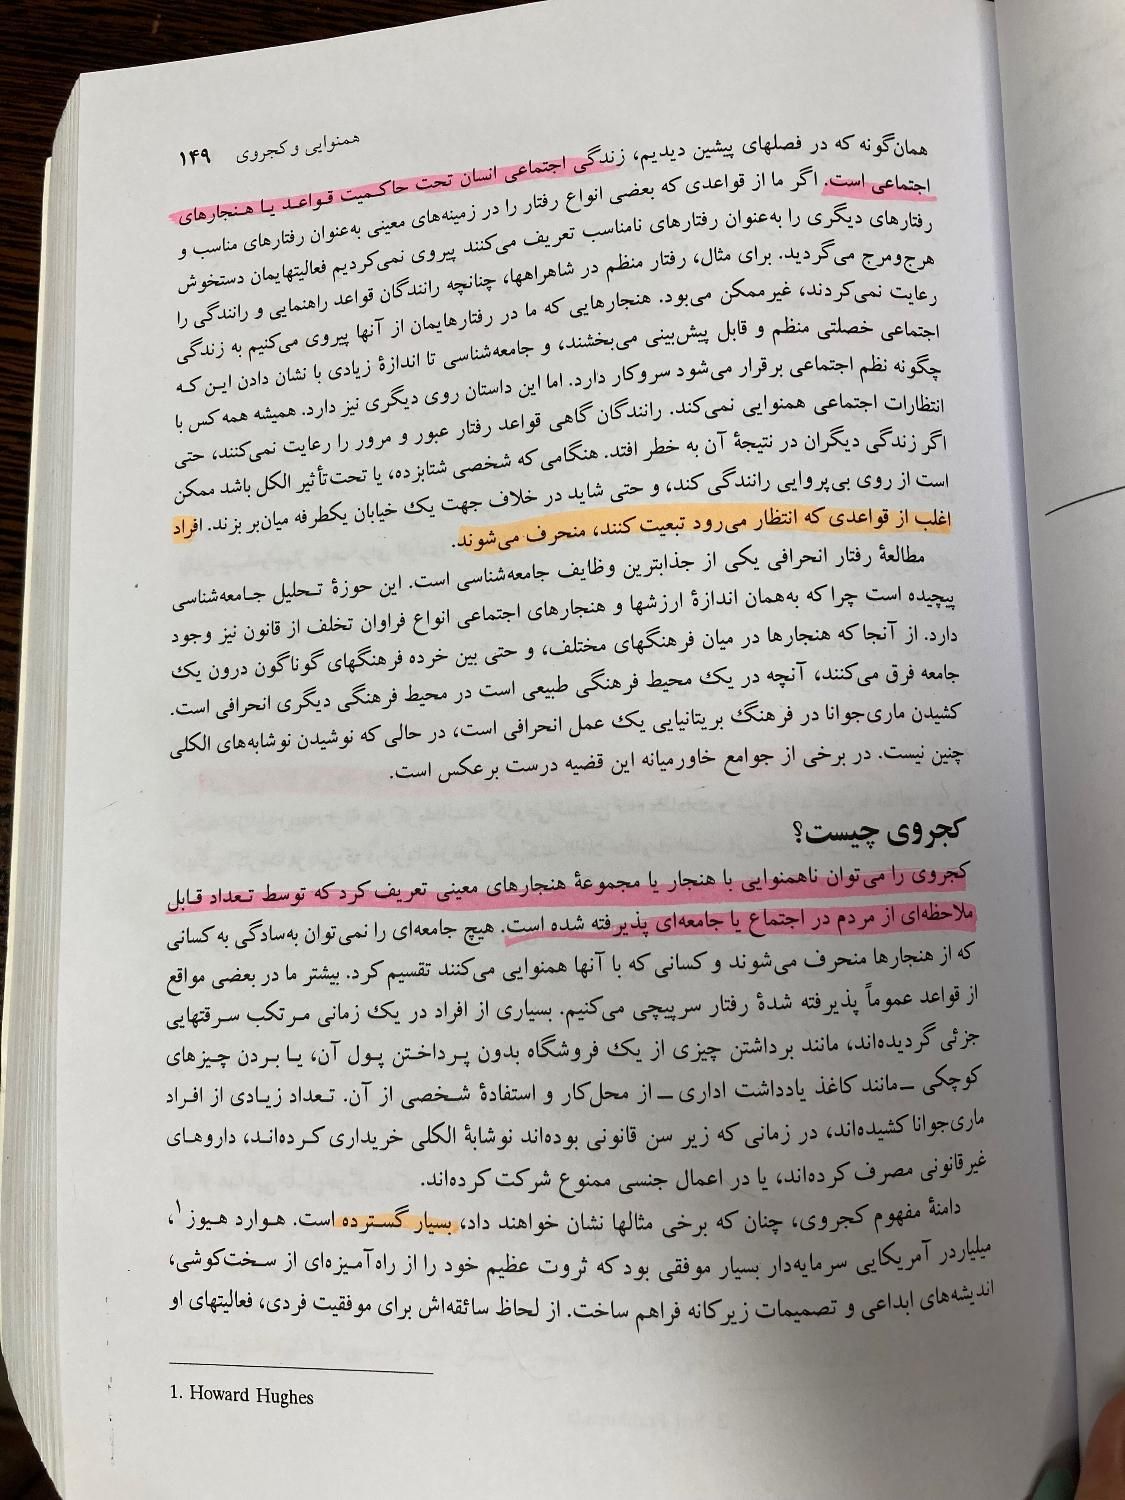 همنوایی و کجروی ۱۴۹
همان‌گونه که در فصلهای پیشین دیدیم، زندگی اجتماعی انسان تحت حاکمیت قواعد یا هنجارهای
اجتماعی است. اگر ما از قواعدی که بعضی انواع رفتار را در زمینه‌های معینی به‌عنوان رفتارهای مناسب و
رفتارهای دیگری را به‌عنوان رفتارهای نامناسب تعریف می‌کنند پیروی نمی‌کردیم فعالیتهایمان دستخوش
هرج‌ومرج می‌گردید. برای مثال، رفتار منظم در شاهراهها، چنانچه رانندگان قواعد راهنمایی و رانندگی را
رعایت نمی‌کردند، غیرممکن می‌بود. هنجارهایی که ما در رفتارهایمان از آنها پیروی می‌کنیم به زندگی
اجتماعی خصلتی منظم و قابل پیش‌بینی می‌بخشند، و جامعه‌شناسی تا اندازهٔ زیادی با نشان دادن این که
چگونه نظم اجتماعی برقرار می‌شود سروکار دارد. اما این داستان روی دیگری نیز دارد. همیشه همه کس با
انتظارات اجتماعی همنوایی نمی‌کند. رانندگان گاهی قواعد رفتار عبور و مرور را رعایت نمی‌کنند، حتی
اگر زندگی دیگران در نتیجهٔ آن به خطر افتد. هنگامی که شخصی شتابزده، یا تحت‌تأثیر الکل باشد ممکن
است از روی بی‌پروایی رانندگی کند، و حتی شاید در خلاف جهت یک خیابان یکطرفه میان‌بر بزند. افراد
اغلب از قواعدی که انتظار می‌رود تبعیت کنند، منحرف می‌شوند.
مطالعهٔ رفتار انحرافی یکی از جذابترین وظایف جامعه‌شناسی است. این حوزهٔ تحلیل جامعه‌شناسی
پیچیده است چرا که به‌همان اندازهٔ ارزشها و هنجارهای اجتماعی انواع فراوان تخلف از قانون نیز وجود
دارد. از آنجا که هنجارها در میان فرهنگهای مختلف، و حتی بین خرده فرهنگهای گوناگون درون یک
جامعه فرق می‌کنند، آنچه در یک محیط فرهنگی طبیعی است در محیط فرهنگی دیگری انحرافی است.
کشیدن ماری‌جوانا در فرهنگ بریتانیایی یک عمل انحرافی است، در حالی که نوشیدن نوشابه‌های الکلی
چنین نیست. در برخی از جوامع خاورمیانه این قضیه درست برعکس است.
کجروی چیست؟
کجروی را می‌توان ناهمنوایی با هنجار یا مجموعهٔ هنجارهای معینی تعریف کرد که توسط تعداد قابل
ملاحظه‌ای از مردم در اجتماع یا جامعه‌ای پذیرفته شده است. هیچ جامعه‌ای را نمی‌توان به‌سادگی به کسانی
که از هنجارها منحرف می‌شوند و کسانی که با آنها همنوایی می‌کنند تقسیم کرد. بیشتر ما در بعضی مواقع
از قواعد عموماً پذیرفته شدهٔ رفتار سرپیچی می‌کنیم. بسیاری از افراد در یک زمانی مرتکب سرقتهایی
جزئی گردیده‌اند، مانند برداشتن چیزی از یک فروشگاه بدون پرداختن پول آن، یا بردن چیزهای
کوچکی –مانند کاغذ یادداشت اداری – از محل‌کار و استفادهٔ شخصی از آن. تعداد زیادی از افراد
ماری‌جوانا کشیده‌اند، در زمانی که زیر سن قانونی بوده‌اند نوشابهٔ الکلی خریداری کرده‌اند، داروهای
غیرقانونی مصرف کرده‌اند، یا در اعمال جنسی ممنوع شرکت کرده‌اند.
دامنهٔ مفهوم کجروی، چنان که برخی مثالها نشان خواهند داد، بسیار گسترده است. هوارد هیوز۱،
میلیاردر آمریکایی سرمایه‌دار بسیار موفقی بود که ثروت عظیم خود را از راه آمیزه‌ای از سخت‌کوشی،
اندیشه‌های ابداعی و تصمیمات زیرکانه فراهم ساخت. از لحاظ سائقه‌اش برای موفقیت فردی، فعالیتهای او
1. Howard Hughes